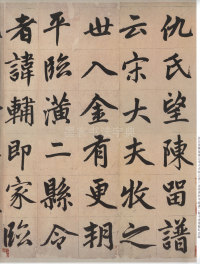 仇氏望陳留譜
云宋大夫牧之
世入金有更朝
平臨潢二縣令
者諱輔即家臨